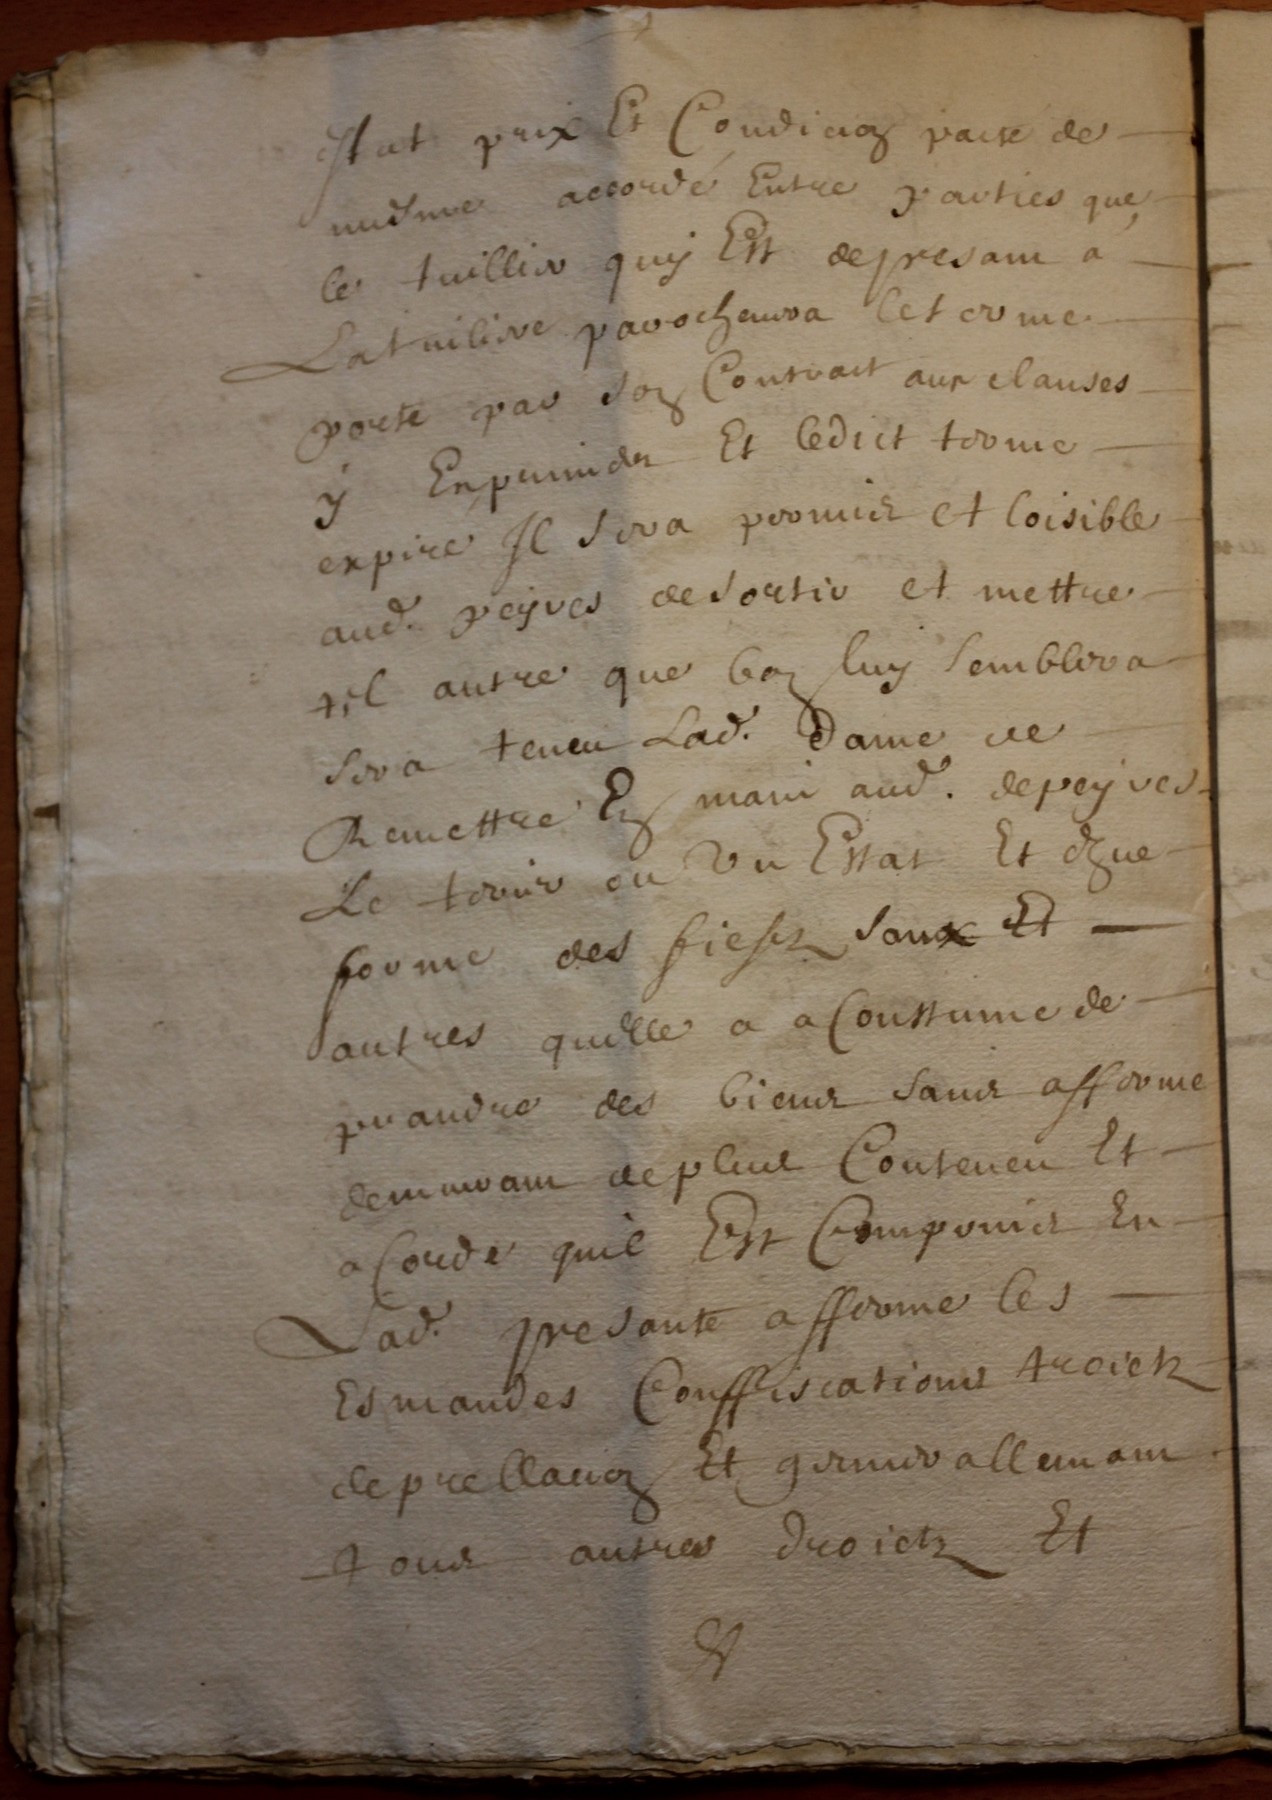 estat prix Et Condicion pacte de
mesme accordé Entre parties que
le tuillier quy Est depresant a
Latuiliere parachevera let erme
porte par son Contract aux clauses
y Exprimées Et ledict terme
expiré Il sera permis et loisible
aud. peyres desortir et mettre
tel autre que bon luy semblera
sera teneu Lad. Dame de
Remettre En main aud. depeyres
Le terrier ou un Estat Et
forme des fiefz sans Et
autres quelle a a Coustume de
prandre des biens sans afferme
demeurant deplus Conteneu Et
a Cordé quil Est Comprins En
Lad. presante afferme les
Esmandes Conffiscations troictz
deprellation Et generallemant
tous autres droictz Et